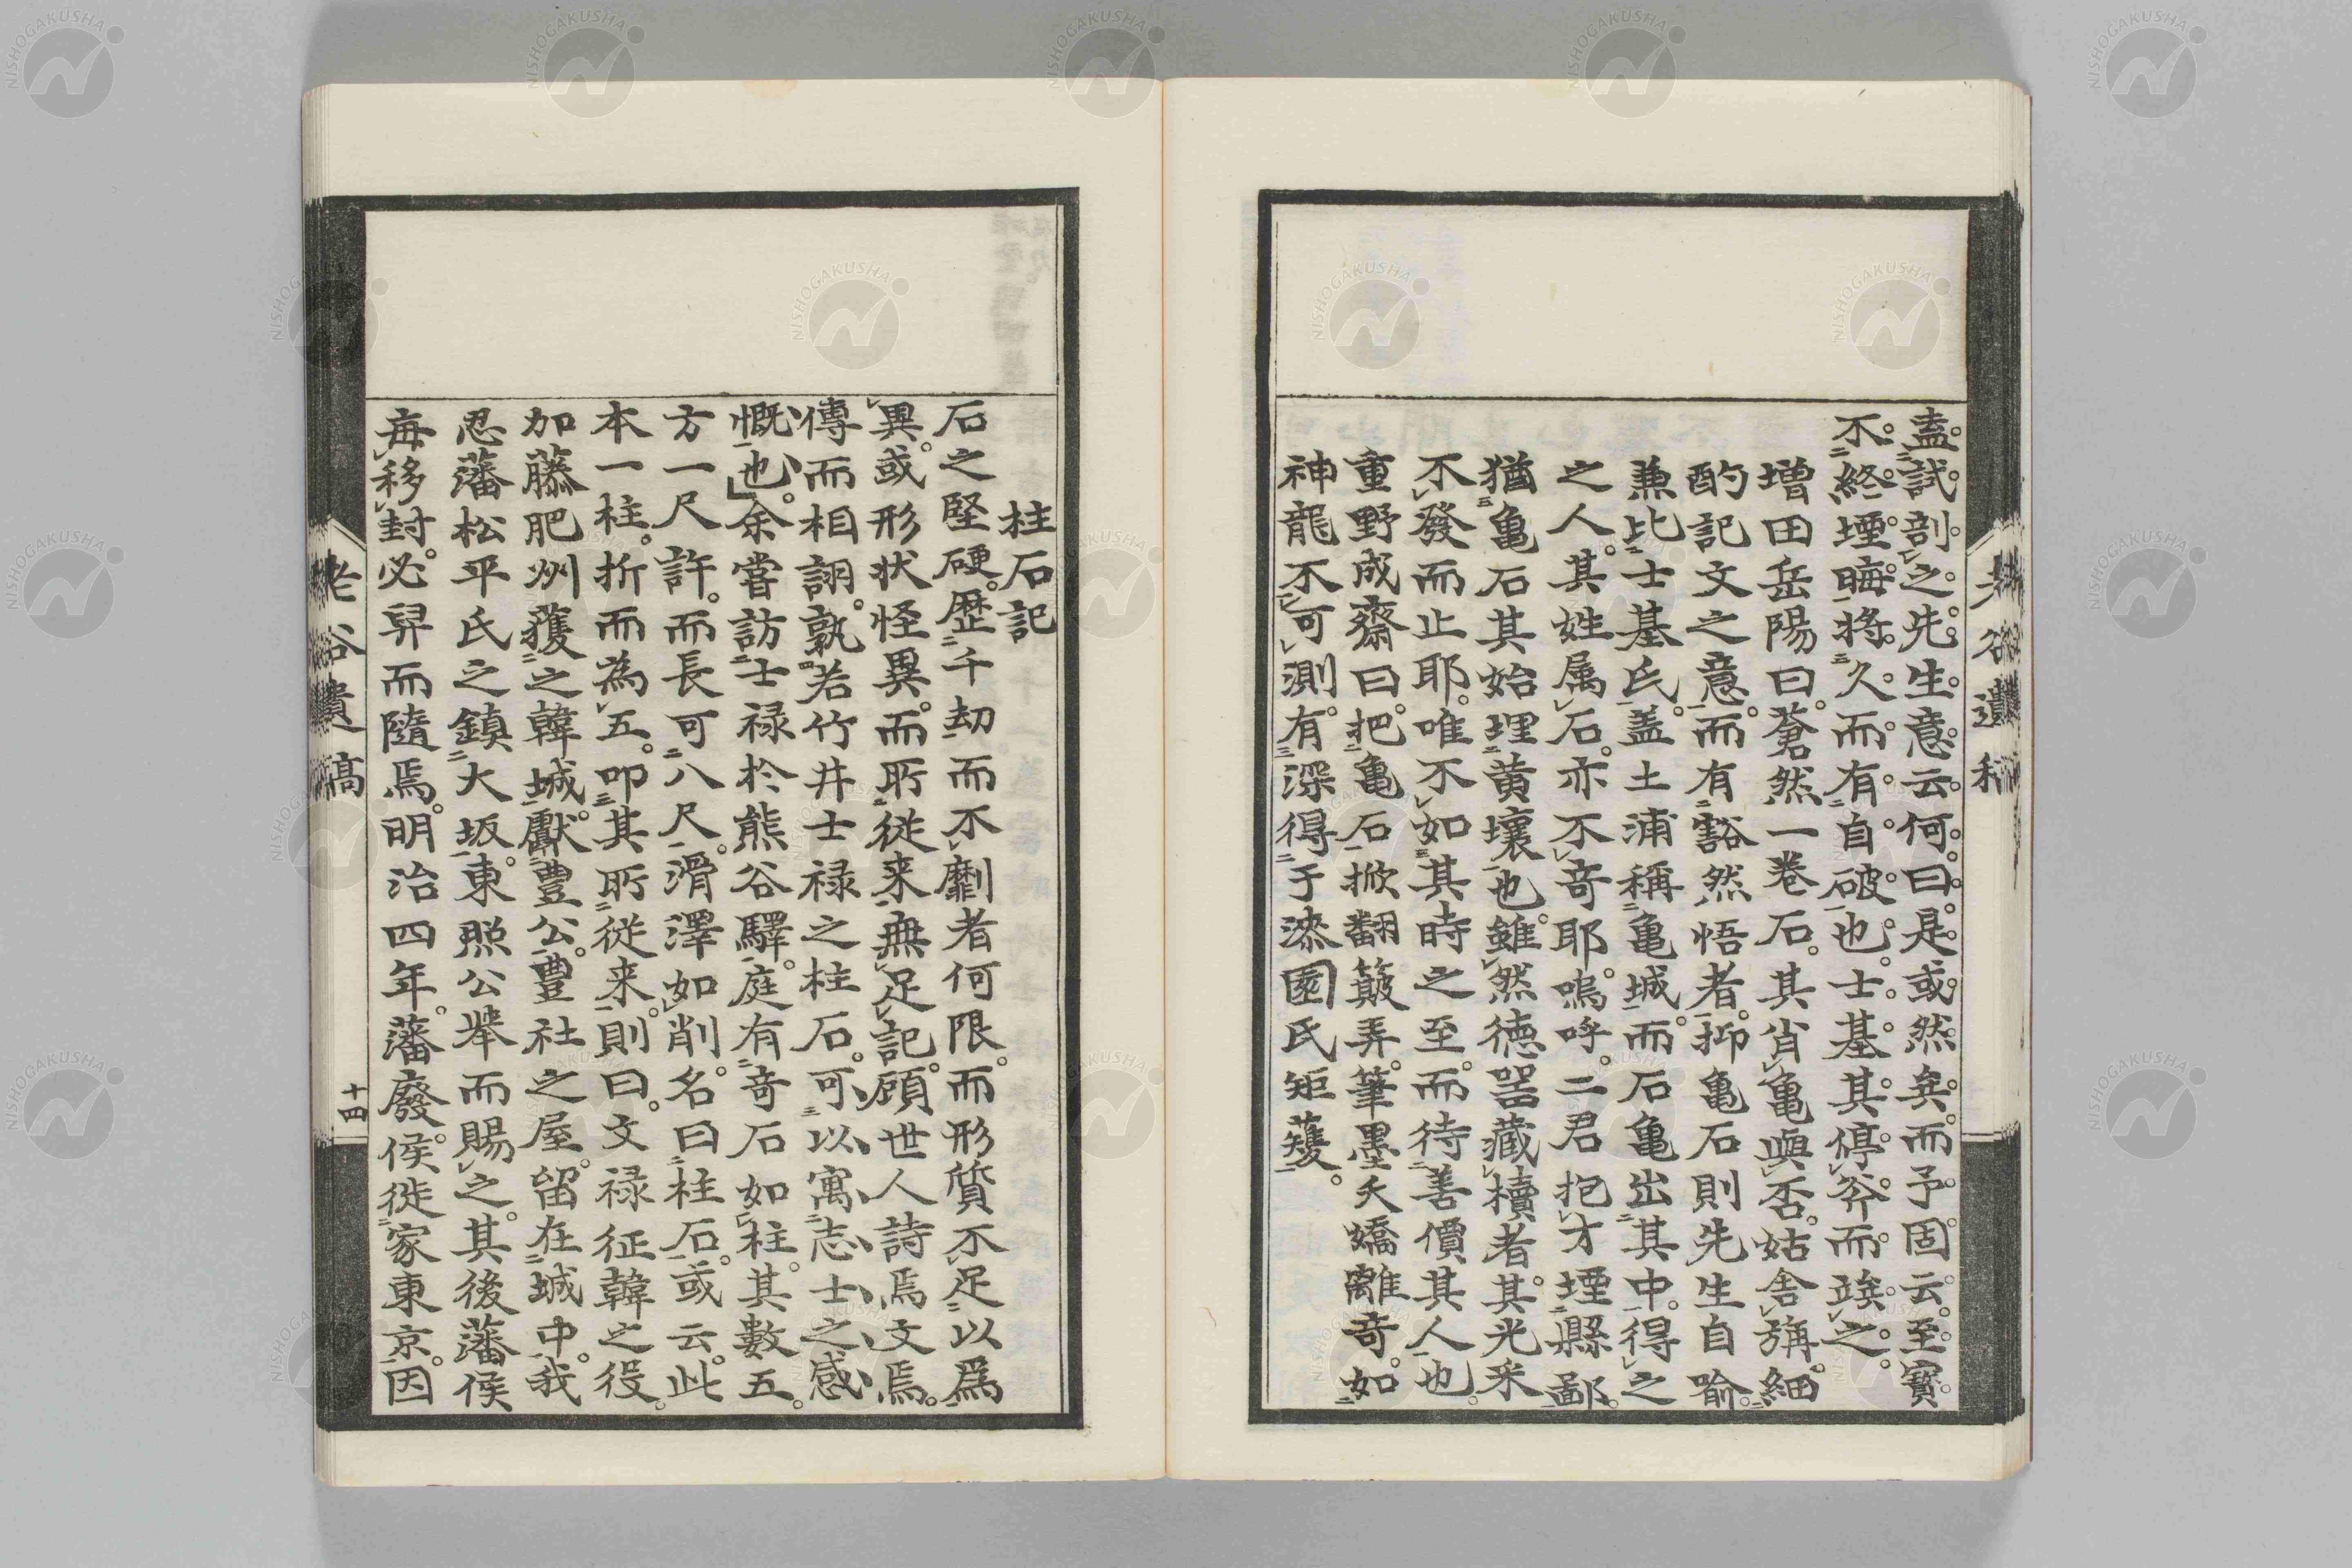 盍試剖之。先生意云何。曰。是或然矣。而予固云。至寶
不終堙晦。將久而有自破也。士基其停斧而竢之。
増田岳陽曰。蒼然一巻石。其肖亀與否。姑舎旃。細
酌記文之意。而有豁然悟者。抑亀石則先生自喩。
兼比士基氏。盖土浦稱亀城。而石亀出其中。得之
之人。其姓属石。亦不竒耶。嗚呼。二君抱才堙縣鄙。
猶亀石其始埋黄壤也。雖然徳噐藏櫝者。其光采
不發而止耶。唯不如其時之至。而待善價其人也。
重野成齋曰。把亀石掀翻簸弄。筆墨夭蟜離竒。如
神龍不可測。有深得于漆園氏矩矱。
柱石記
石之堅硬。歴千劫而不劘者何限。而形質不足以爲
異。或形状怪異。而所從来無足記。顧世人詩焉文焉。
傳而相詡。孰若竹井士禄之柱石。可以寓志士之感
慨也。余嘗訪士禄於熊谷驛。庭有竒石如柱。其數五。
方一尺許。而長可八尺。滑澤如削。名曰柱石。或云。此
本一柱。折而為五。叩其所從来。則曰。文禄征韓之役。
加藤肥州獲之韓城。獻豊公。豊社之屋。留在城中。我
忍藩松平氏之鎮大坂。東照公擧而賜之。其後藩侯
毎移封。必舁而隨焉。明治四年。藩廢。侯徙家東京。因
老谷遺稿
十四
NISHOGAKUSHA